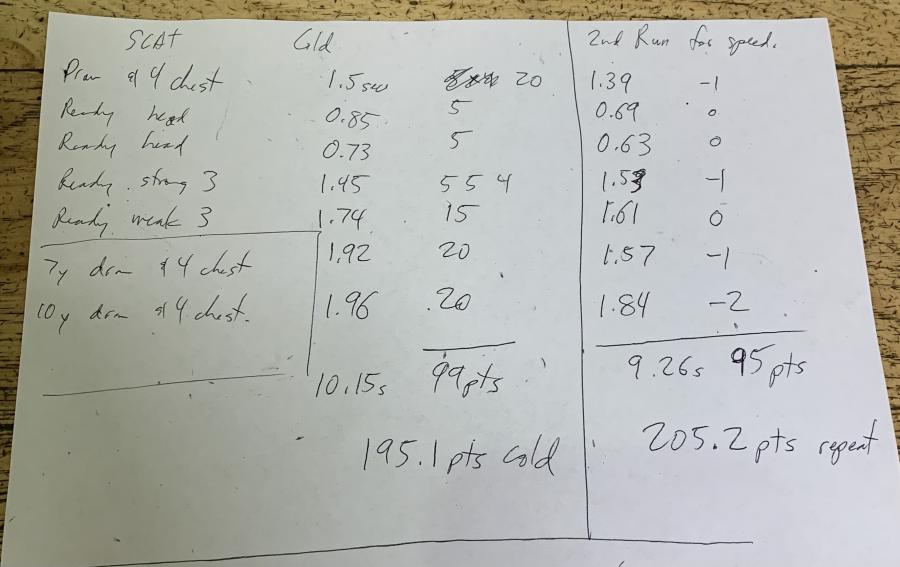 SCAT Cold 2nd Run for speed.
Draw & 4 chest 1.5 sec 20 1.39 -1
Ready head 0.85 5 0.69 0
Ready head 0.73 5 0.63 0
Ready strong 3 1.45 5 5 4 1.53 -1
Ready weak 3 1.74 15 1.61 0
7y draw & 4 chest 1.92 20 1.57 -1
10y draw & 4 chest. 1.96 20 1.84 -2
10.15s 99pts 9.26s 95pts
195.1pts cold 205.2pts repeat